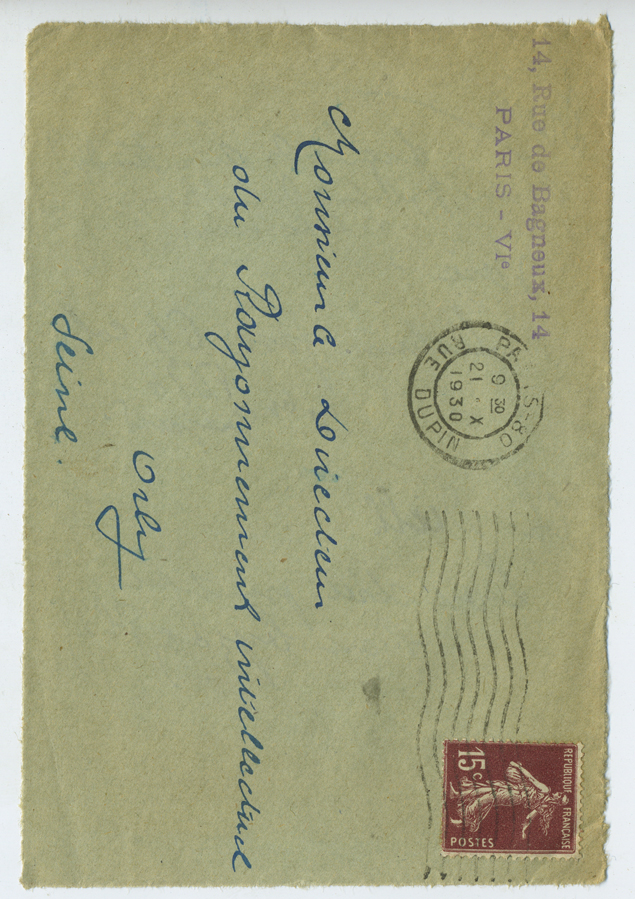 14, Rue de Bagneux, 14
PARIS - VIe
PARIS-80
9 30
21 • X
1930
RUE DUPIN
REPUBLIQUE FRANÇAISE
15c
POSTES
Monsieur le Directeur
du Rayonnement intellectuel
Orly
Seine.